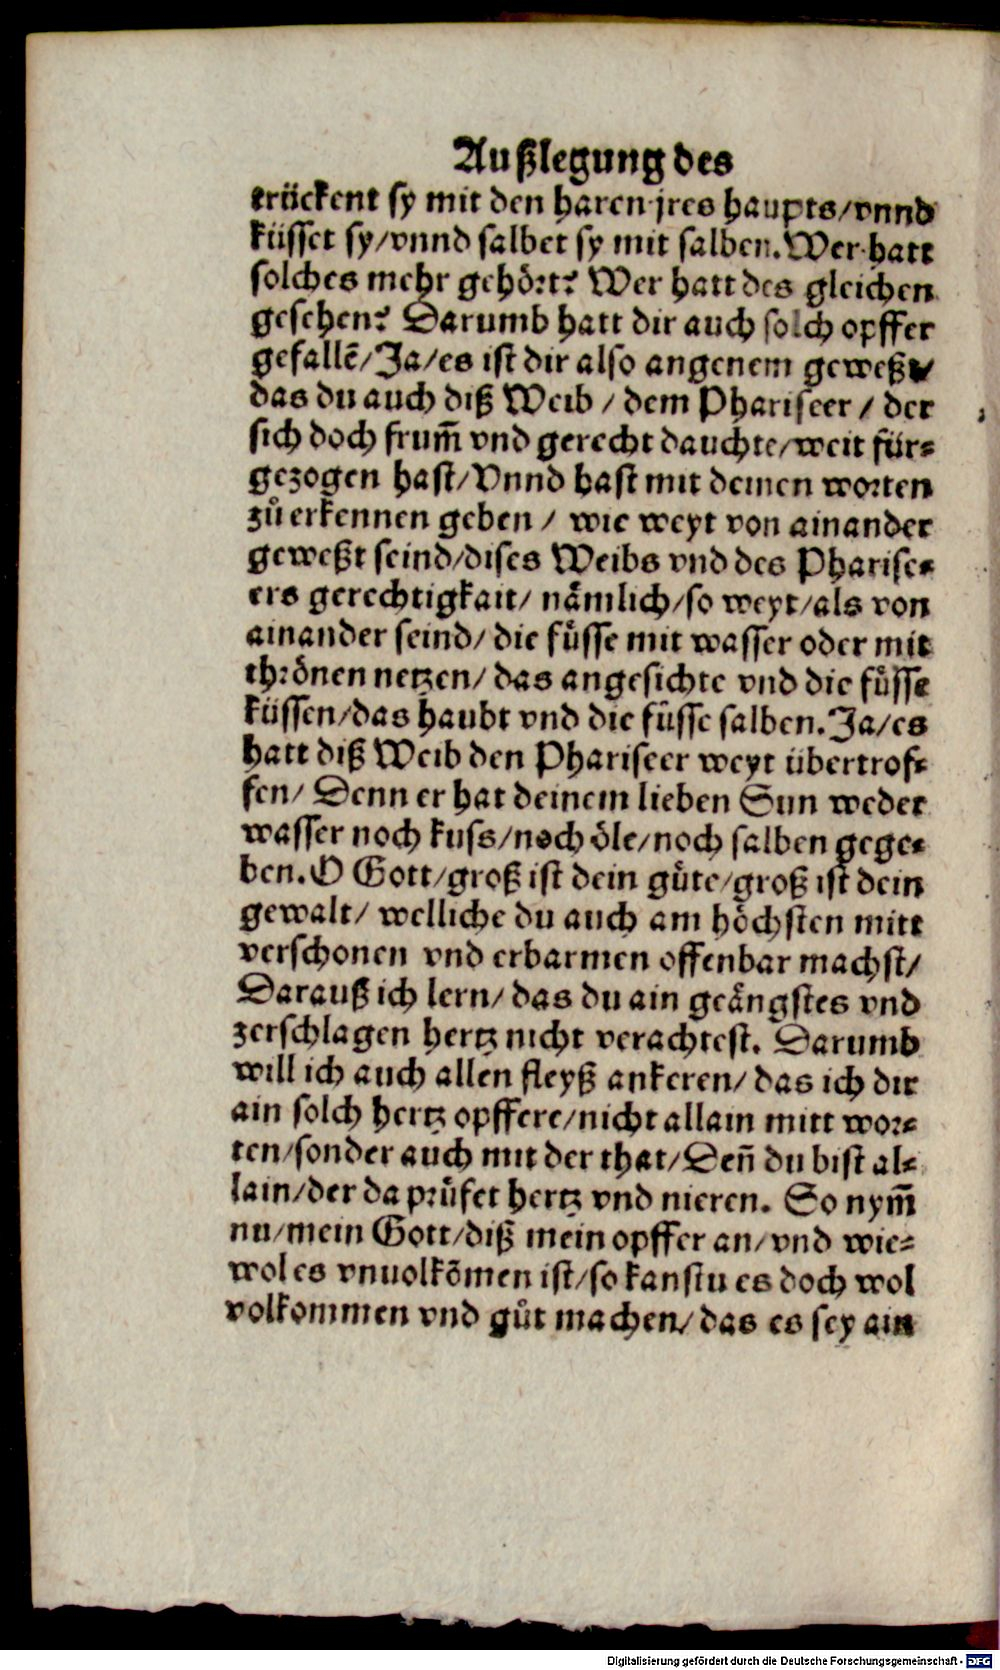 Außlegung des
trückent sy mit den haren jres haupts/vnnd
küsset sy/vnnd salbet sy mit salben. Wer hatt
solches mehr gehört? Wer hatt des gleichen
gesehen? Darumb hatt dir auch solch opffer
gefallē/Ja/es ist dir also angenem geweßt/
das du auch diß Weib / dem Phariseer / der
sich doch frum̃ vnd gerecht dauchte/weit für⸗
gezogen hast/Vnnd hast mit deinen worten
zů erkennen geben / wie weyt von ainander
geweßt seind/dises Weibs vnd des Pharise⸗
ers gerechtigkait/ nämlich/so weyt/als von
ainander seind/ die füsse mit wasser oder mit
thrönen netzen/ das angesichte vnd die füsse
küssen/das haubt vnd die füsse salben. Ja/es
hatt diß Weib den Phariseer weyt übertrof⸗
fen/ Denn er hat deinem lieben Sun weder
wasser noch kuss/noch öle/noch salben gege⸗
ben. O Gott/groß ist dein güte/groß ist dein
gewalt/ welliche du auch am höchsten mitt
verschonen vnd erbarmen offenbar machst/
Darauß ich lern/ das du ain geängstes vnd
zerschlagen hertz nicht verachtest. Darumb
will ich auch allen fleyß ankeren/ das ich dir
ain solch hertz opffere/nicht allain mitt wor⸗
ten/sonder auch mit der that/Deñ du bist al⸗
lain/der da prüfet hertz vnd nieren. So nym̃
nu/mein Gott/diß mein opffer an/vnd wie⸗
wol es vnuolkõmen ist/so kanstu es doch wol
volkommen vnd gůt machen/das es sey ain
Digitalisierung gefördert durch die Deutsche Forschungsgemeinschaft - DFG